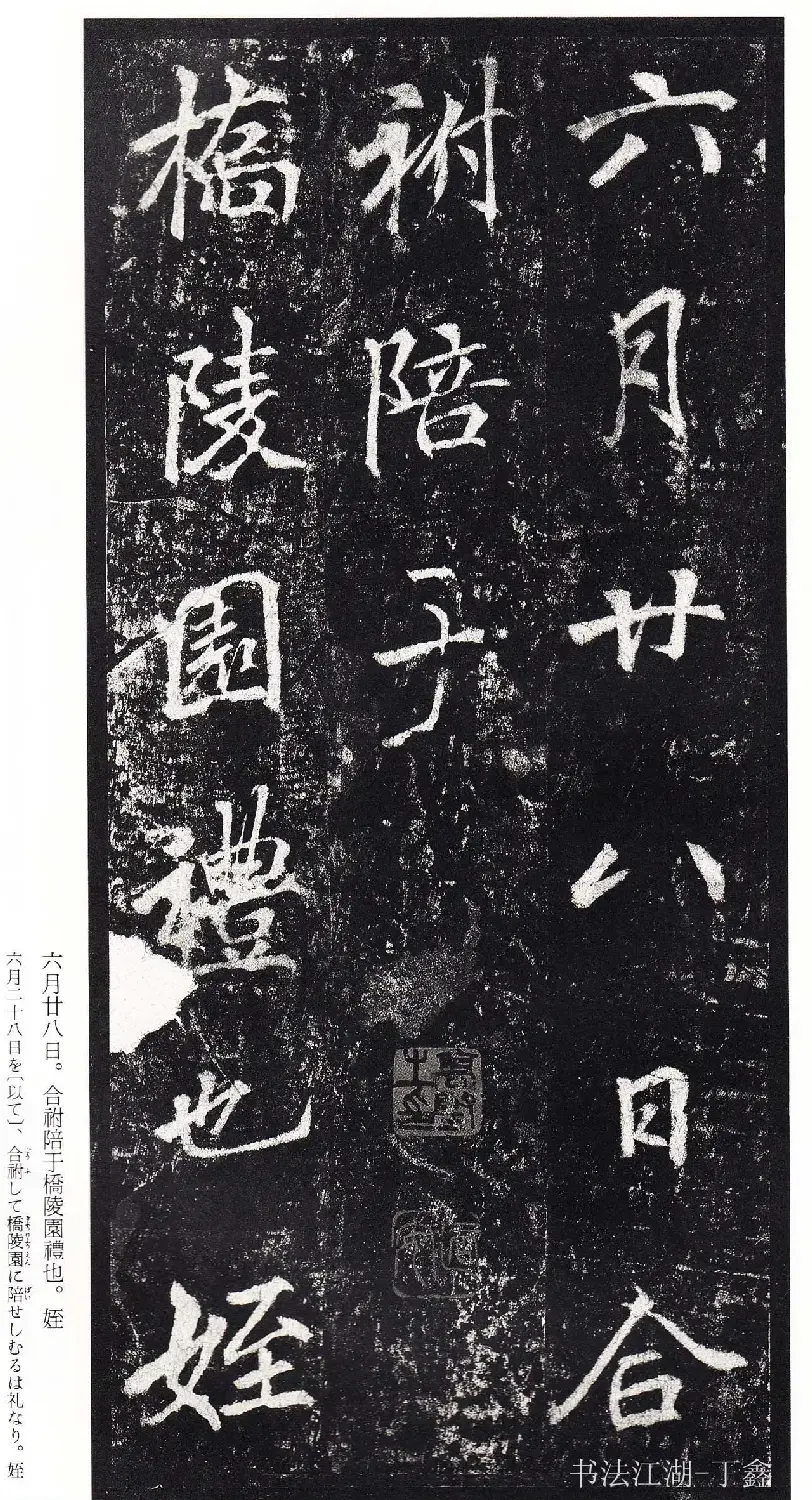 六月廿八日合
祔陪于
橋陵園禮也姪
六月廿八日。合祔陪于橋陵園禮也。姪
六月二十八日を〔以て〕、合祔して橋陵園に陪せしむるは礼なり。姪
书法江湖-丁鑫